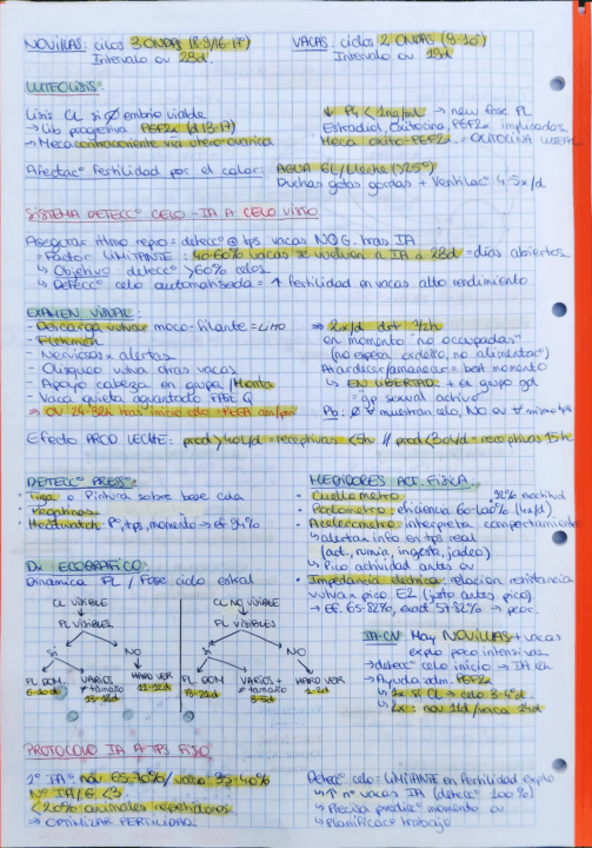 NOVILLAS: ciclos 3 ONDAS (8-9/16-17º)
Intervalo ov 23d.
VACAS: ciclos 2 ONDAS (9-10º)
Intervalo ov 19d
LUTEOLISIS:
Lisis CL si Ø embrio viable
→ Lib progesiva PGF2α (d 13-17)
→ Meca contracorriente via utero-ovarica
↓ P4 < 1ng/mL → new fase FL
Estradiol, Oxitocina, PGF2α implicados
Meca oxito-PGF2α. OXITOCINA LUTEAL
Afectacº fertilidad por el calor:
AGUA 6L/Lleche (>25º)
Duchas gotas gordas + Ventilacº 4-5x/d
SISTEMA DETECCº CELO - IA A CELO VISTO
Asegurar ritmo repro = detecc° tps vacas NO G. tras IA
= Factor LIMITANTE: 40-60% vacas se vuelven a IA a 23d = días abiertos
↳ Objetivo: detecc° >60% celos
↳ Detecc° celo automatisada = ↑ fertilidad en vacas alto rendimiento
EXAMEN VISUAL:
- Descarga vulvar moco-filante = LIMO
- Flehmen
- Nerviosas x alertas
- Olisqueo vulva otras vacas
- Apoyo cabeza en grupa / Monta
- Vaca quieta aguantado FASE Q
⇒ OV 24-32h tras inicio celo = REGLA am/pm
⇒ 2x/d drt 1/2h
en momento "no ocupadas"
(no espera ordeño, no alimentac°)
Atardecer/amanecer = best momento
↳ EN LIBERTAD + en grupo gd
= gp sexual activo
Pb: Ø ∀ muestran celo, NO ov ∀ mismo tps
Efecto PROD LECHE: prod > 40L/d = receptivas <5h // prod <30L/d = receptivas 15h
DETECC° PRES°:
· Tiza o Pintura sobre base cola
· Heatwatch: P°, tps, momento → ef 94%
MEDIDORES ACT. FISICA
· Cuellometro: 92% exactitud
· Podometro: eficiencia 60-100% (4x/d)
· Acelerometro: interpreta comportamiento
↳ alertas info en tps real
(act., rumia, ingesta, jadeo)
↳ Pico actividad antes ov
· Impedancia electrica: relacion resistencia
vulva x pico E2 (justo antes pico)
→ Ef. 65-82%, exact 57-82% → peor.
Dx ECOGRAFICO:
Dinamica FL / Fase ciclo estral
CL VISIBLE
FL VISIBLES
SI
NO
FL DOM.
6-10 d
VARIOS
≠ tamaño
13-18d
HARD VER
11-12d
CL NO VISIBLE
FL VISIBLES
SI
NO
FL DOM
19-21d
VARIOS +
≠ tamaño
3-5d
HARD VER
1-2d
IA-CN. May NOVILLAS + vacas
explo poco intensivas
→ detecc° celo inicio → IA 12h
→ Ayuda adm. PGF2α
↳ 1x si CL → celo 3-4°d.
↳ 2x: nov 11d / vaca 14d
PROTOCOLO IA A TPS FIJO
1° IA: nov 65-70% / vaca 35-40%
Nº IA/G <3
<20% animales repetidores
⇒ OPTIMIZAR FERTILIDAD
Detecc° celo: LIMITANTE en fertilidad explo
↳ ↑ nº vacas IA (detecc° 100%)
↳ Precisa predicc° momento ov
↳ Planificac° trabajo